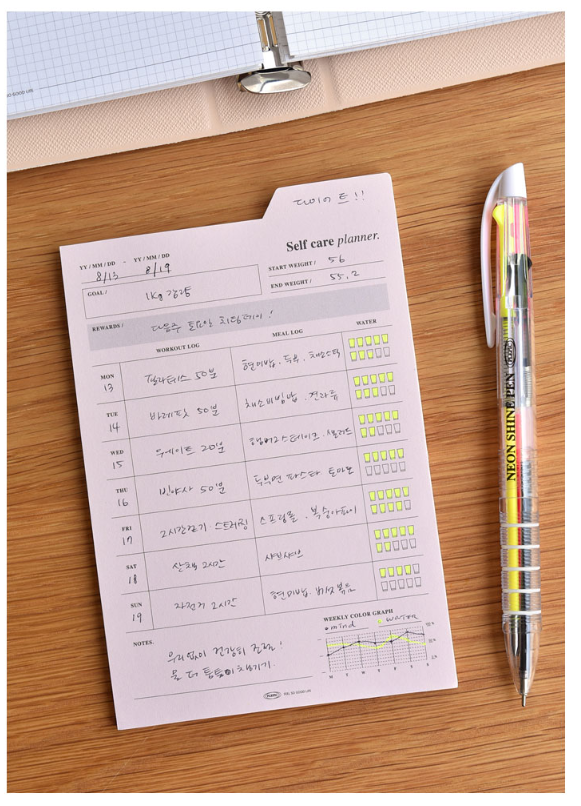 다이어트!!
Self care planner.
YY / MM / DD - YY / MM / DD
8/13 8/19
START WEIGHT / 56
END WEIGHT / 55.2
GOAL / 1kg 감량
REWARDS / 다음주 토요일 치팅데이!
WORKOUT LOG MEAL LOG WATER
MON 13 필라티스 50분 현미밥. 두부. 채소스틱
TUE 14 바레핏 50분 채소비빔밥.
WED 15 웨이트 20분 샐러드
THU 16 빈야사 50분 두부면 파스타 토마토
FRI 17 2시간걷기. 스트레칭 스프링롤.
SAT 18 산책 2시간 샤브샤브
SUN 19 자전거 2시간 현미밥. 버섯볶음
NOTES.
무리없이 건강히 감량!
물 더 틈틈이 챙기기.
WEEKLY COLOR GRAPH
mind water
M T W T F S S
NEON SHINE PEN